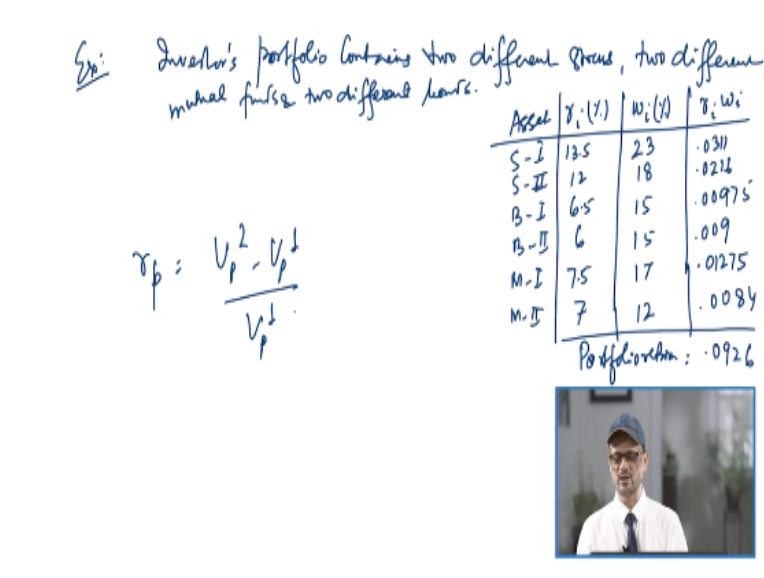 Ex: Investor's portfolio contains two different stocks, two different
mutual funds & two different bonds.
Asset | r_i (%) | w_i (%) | r_i w_i
S-I | 13.5 | 23 | .0311
S-II | 12 | 18 | .0216
B-I | 6.5 | 15 | .00975
B-II | 6 | 15 | .009
M-I | 7.5 | 17 | .01275
M-II | 7 | 12 | .0084
Portfolio return : .0926
r_p = (V_p^2 - V_p^1) / V_p^1